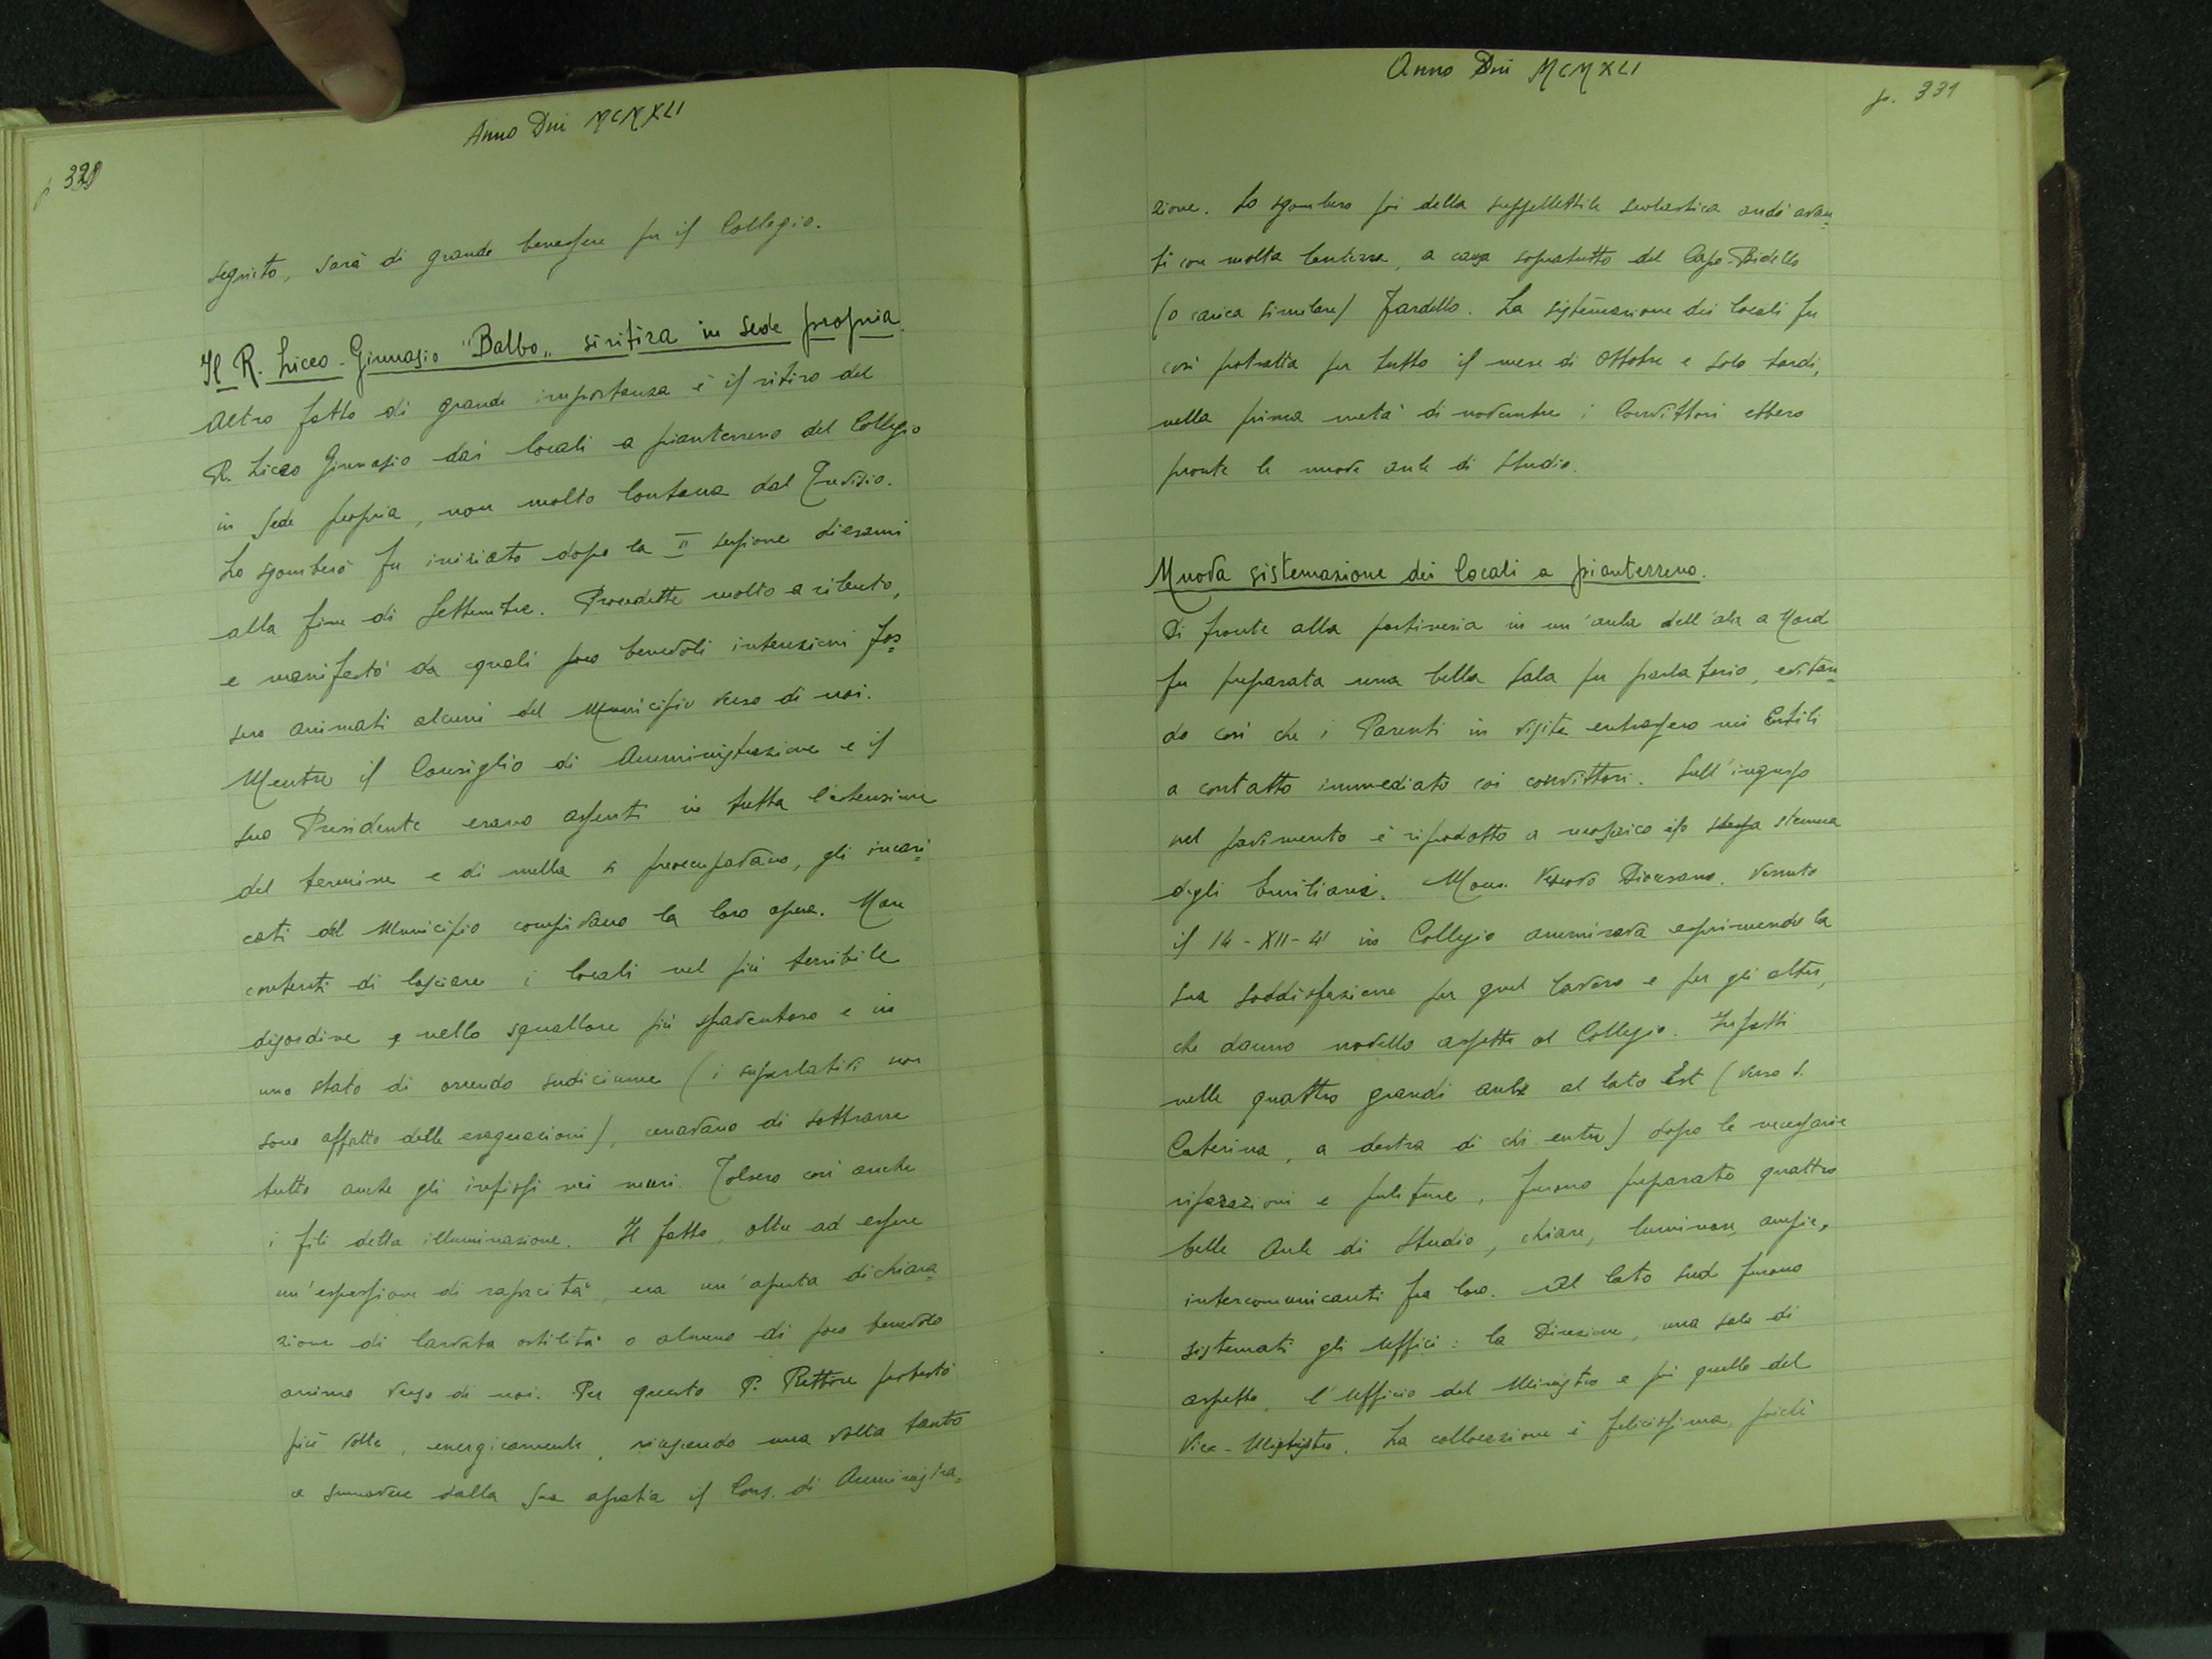 Anno Dni MCMXLI
seguito, sarà di grande benessere per il Collegio.
Il R. Liceo-Ginnasio "Balbo" si ritira in sede propria.
Altro fatto di grande importanza è il ritiro del
R. Liceo Ginnasio dai locali a pianterreno del Collegio
in sede propria, non molto lontana dal Trevisio.
Lo sgombero fu iniziato dopo la II sessione di esami
alla fine di Settembre. Procedette molto a rilento,
e manifestò da quali poco benevoli intenzioni fos=
sero animati alcuni del Municipio verso di noi.
Mentre il Consiglio di Amministrazione e il
suo Presidente erano assenti in tutta l'estensione
del termine e di nulla si preoccupavano, gli incari=
cati del Municipio compivano la loro opera. Non
contenti di lasciare i locali nel più terribile
disordine e nello squallore più spaventoso e in
uno stato di orrendo sudiciume (i superlativi non
sono affatto delle esagerazioni), cercavano di sottrarre
tutto anche gli infissi nei muri. Tolsero così anche
i fili della illuminazione. Il fatto, oltre ad essere
un'espressione di rapacità, era un'aperta dichiara=
zione di larvata ostilità o almeno di poco benevolo
animo verso di noi. Per questo P. Rettore protestò
più volte, energicamente, riuscendo una volta tanto
a smuovere dalla sua apatia il Cons. di Amministra=
Anno Dni MCMXLI
p. 331
zione. Lo sgombero poi della suppellettile scolastica andò avan=
ti con molta lentezza, a causa sopratutto del Capo-Bidello
(o carica similare) Fardello. La sistemazione dei locali fu
così protratta per tutto il mese di Ottobre e solo tardi,
nella prima metà di novembre i Convittori ebbero
pronte le nuove aule di Studio.
Nuova sistemazione dei locali a pianterreno.
Di fronte alla portineria in un'aula dell'ala a Nord
fu preparata una bella Sala per parlatorio, evitan=
do così che i Parenti in visita entrassero nei Cortili
a contatto immediato coi convittori. Sull'ingresso
nel pavimento è riprodotto a mosaico lo stemma
degli Emiliani. Mons. Vescovo Diocesano, venuto
il 14-XII-41 in Collegio ammirava esprimendo la
sua soddisfazione per quel lavoro e per gli altri,
che danno novello aspetto al Collegio. Infatti
nelle quattro grandi aule al lato Est (verso S.
Caterina, a destra di chi entra) dopo le necessarie
riparazioni e puliture, furono preparate quattro
belle Aule di Studio, chiare, luminose, ampie,
intercomunicanti fra loro. Al lato Sud furono
sistemati gli Uffici: la Direzione, una sala di
aspetto, l'Ufficio del Ministro e poi quello del
Vice-Ministro. La collocazione è felicissima, poiché